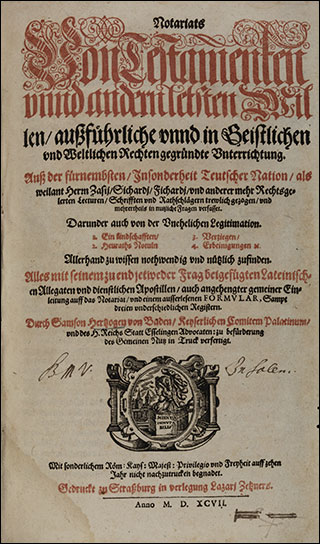 Notariats
Von Testamenten
vnnd andern letsten Wil
len / außführliche vnnd in Geistlichen
vnd Weltlichen Rechten gegründte Vnterrichtung.
Auß der fürnembsten / Insonderheit Teutscher Nation / als
weilant Herrn Zasij / Sichardj / Fichardj / vnd anderer mehr Rechtsge-
lerten Lecturen / Schrifften vnd Rathschlägen trewlich gezogen / vnd
mehrertheils in nutzliche Fragen verfasset.
Darunder auch von der Vnehelichen Legitimation.
1. Ein kindschafften / 3. Verziegen /
2. Heuraths Notuln 4. Erbeinigungen ꝛc
Allerhand zu wissen notwendig vnd nützlich zufinden.
Alles mit seinem zu end jetweder Frag beigefügten Lateinisch-
en Allegaten vnd dienstlichen Apostillen / auch angehengter gemeiner Ein
leitung auff das Notariat / vnd einem ausserlesenen FORMVLAR, Sampt
dreien vnderschiedlichen Registern.
Durch Samson Hertzogen von Baden / Keyserlichen Comitem Palatinum /
vnd des H. Reichs Statt Esselingen Advocaten: zu befürderung
des Gemeinen Nutz in Truck verfertigt.
Mit sonderlichem Röm: Kays: Majest: Privilegio vnd Freyheit auff zehen
Jahr nicht nachzutrucken begnadet.
Gedruckt zu Straßburg in verlegung Lazarj Zetzners.
Anno M. D. XCVII.